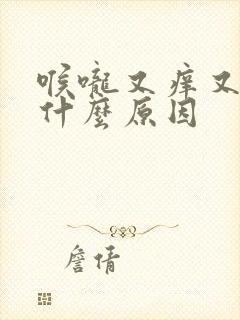 喉嚨又痒又
什麼原因
詹倩